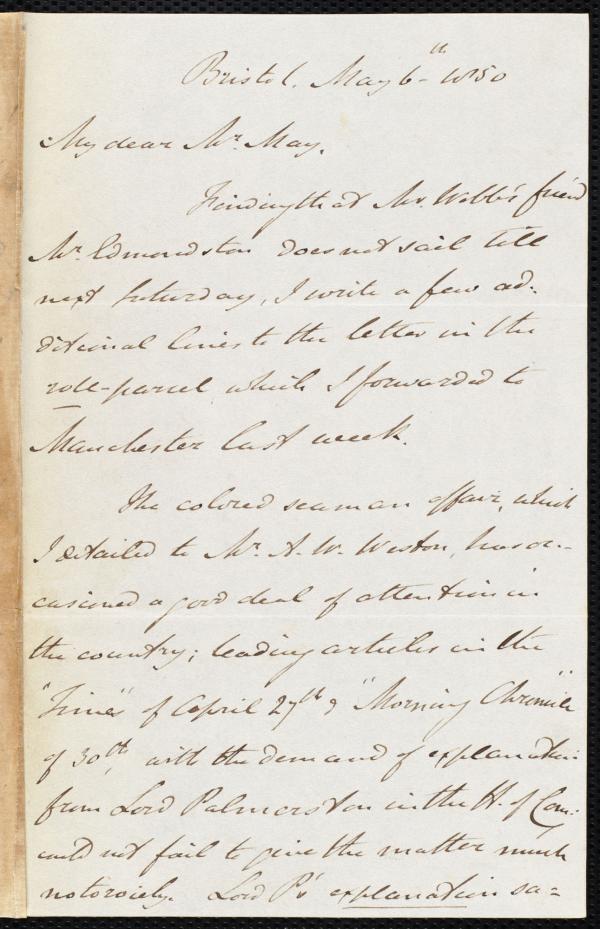 Bristol. May 6th 1850
My dear Mr. May.
Finding that Mr. Webb's friend
Mr. Edmondston does not sail till
next Saturday, I write a few ad-
ditional lines to the letter in the
roll-parcel which I forwarded to
Manchester last week.
The colored seaman affair, which
I detailed to Mr. A. W. Weston, has oc-
casioned a good deal of attention in
the country; leading articles in the
"Times" of April 27th & "Morning Chronicle"
of 30th, with the demand of explanation
from Lord Palmerston in the H. of Com:
could not fail to give the matter much
notoriety. Lord P's explanation sa-